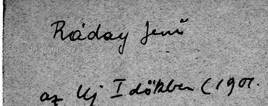 Ráday Jenő
az Uj Időkben (1901.